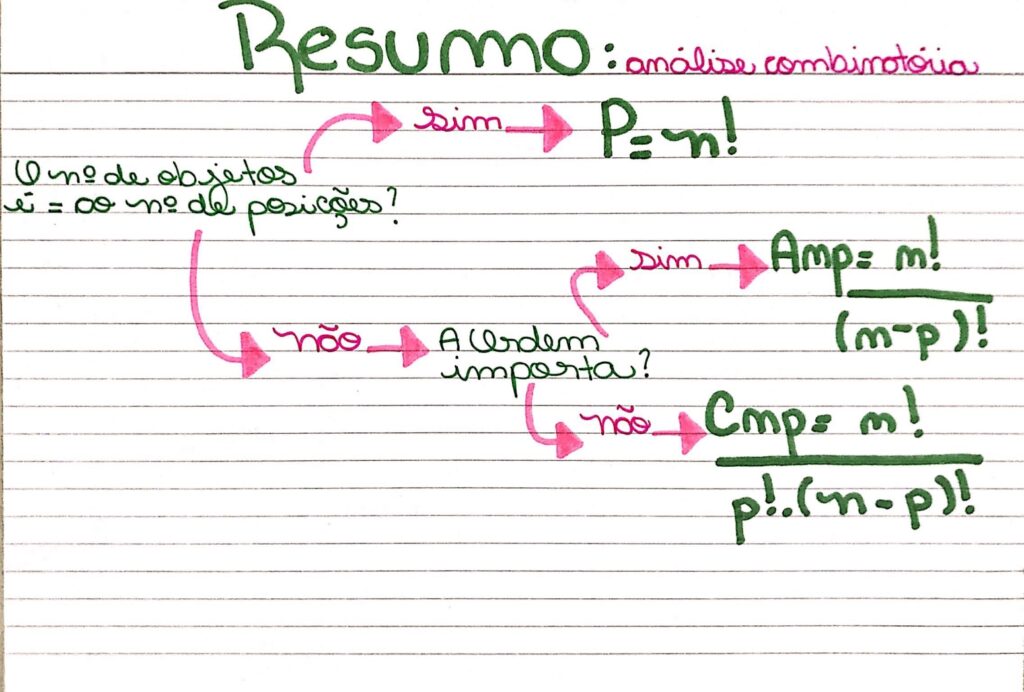 Resumo: análise combinatória
sim P = n!
O nº de objetos
é = ao nº de posições?
sim Anp = n!
(n-p)!
não A Ordem
importa?
não Cnp = n!
p!.(n-p)!